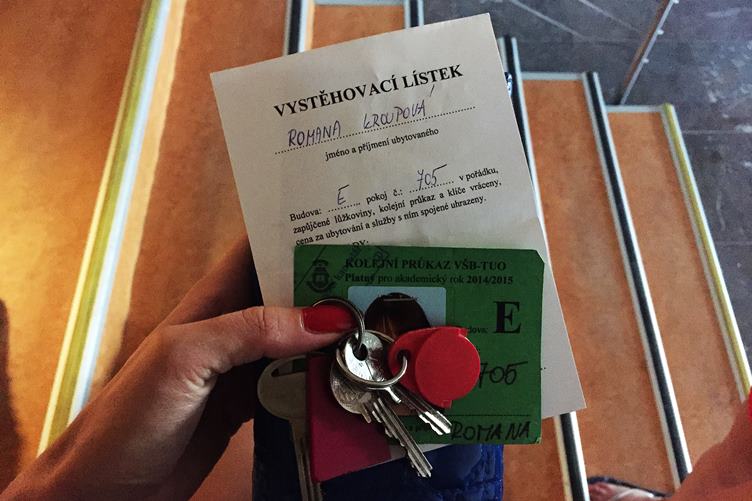 VYSTĚHOVACÍ LÍSTEK
ROMANA KROUPOVÁ
jméno a příjmení ubytovaného
Budova: E pokoj č.: 705 v pořádku,
zapůjčené lůžkoviny, kolejní průkaz a klíče vráceny,
cena za ubytování a služby s ním spojené uhrazeny.
KOLEJNÍ PRŮKAZ VŠB-TUO
Platný pro akademický rok 2014/2015
E
705
ROMANA